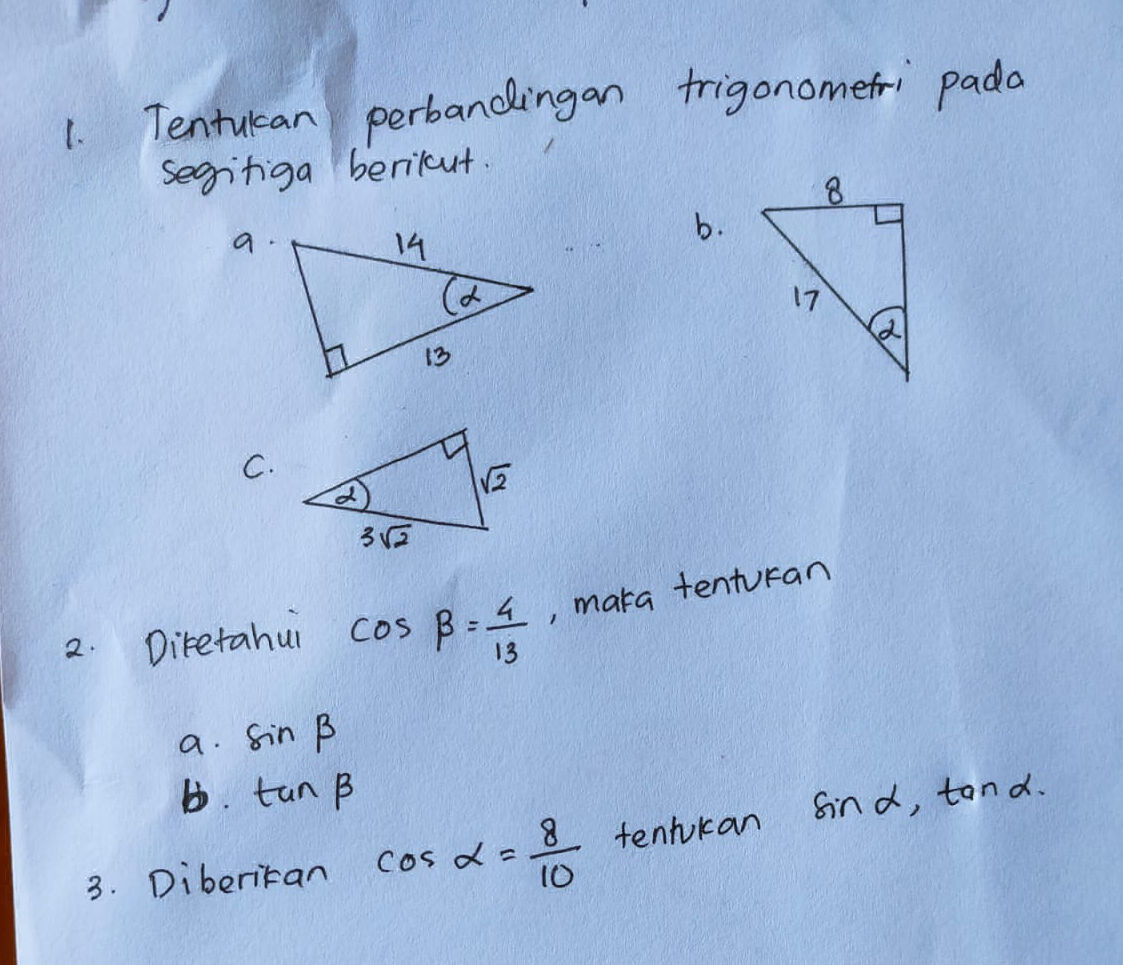 1. Tentukan perbandingan trigonometri pada
segitiga berikut.
a. 14
α
13
b. 8
17
α
c.
α
√2
3√2
2. Diketahui cos β = 4/13, maka tentukan
a. sin β
b. tan β
3. Diberikan cos α = 8/10 tentukan sin α, tan α.